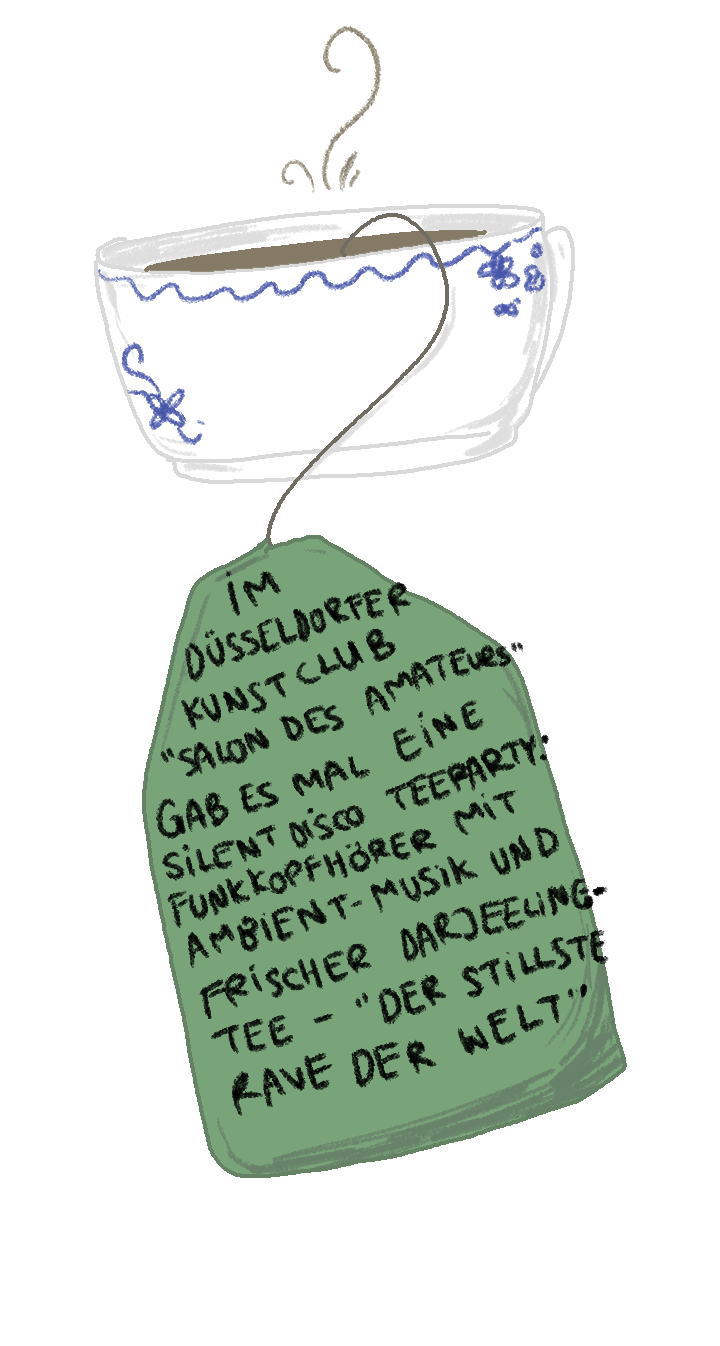 IM
DÜSSELDORFER
KUNSTCLUB
"SALON DES AMATEURS"
GAB ES MAL EINE
SILENT DISCO TEEPARTY:
FUNKKOPFHÖRER MIT
AMBIENT-MUSIK UND
FRISCHER DARJEELING-
TEE - "DER STILLSTE
RAVE DER WELT"